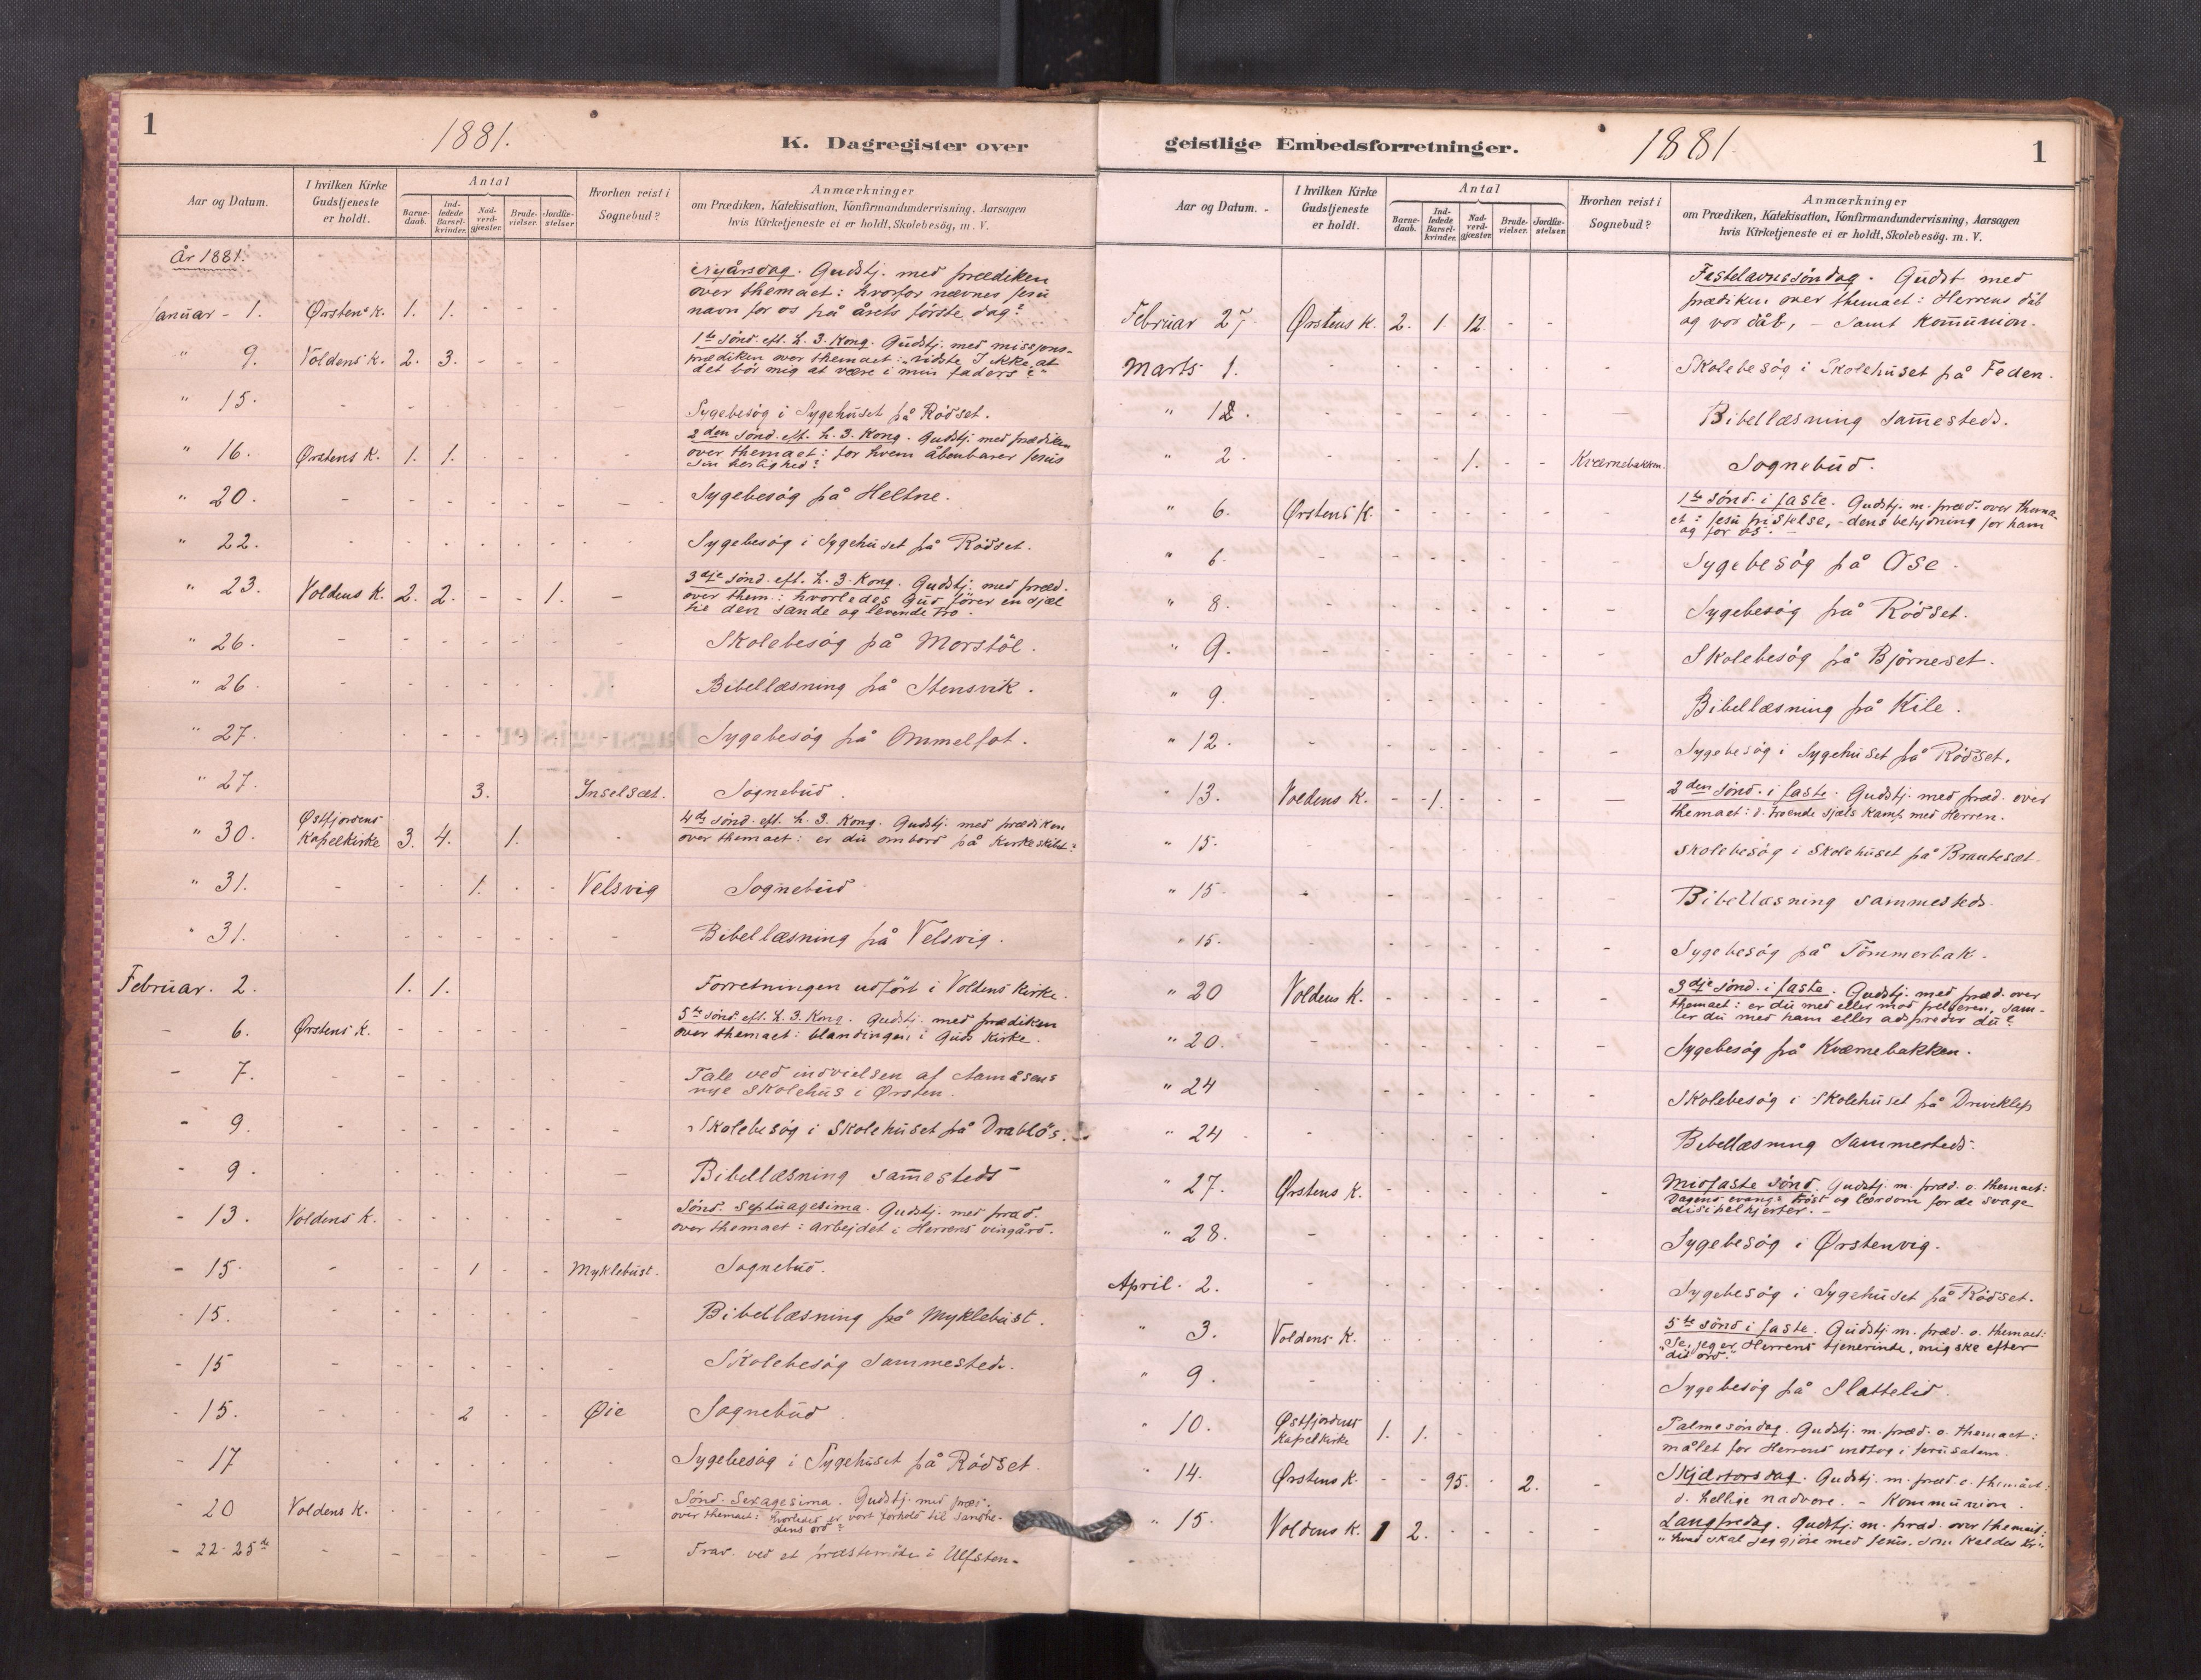 1
1881.
K. Dagregister over
Aar og Datum.
I hvilken Kirke
Gudstjeneste
er holdt.
Antal
Barne-
daab.
Ind-
ledede
Barsel-
kvinder.
Nad-
verd-
gjæster.
Brude-
vielser.
Jordfæ-
stelser
Hvorhen reist i
Sognebud?
Anmærkninger
om Prædiken, Katekisation, Konfirmandundervisning, Aarsagen
hvis Kirketjeneste ei er holdt, Skolebesög, m. V.
År 1881.
Nyårsdag. Gudstj. med prædiken
over themaet: hvorfor nævnes Jesu
Januar - 1. Ørstens K. 1. 1. - - - navn for os på årets første dag?
1te sønd. eft. h. 3. Kong. Gudstj. med missjons-
" 9. Voldens K. 2. 3. - - - prædiken over themaet: vidste I ikke at
det bör mig at være i min faders?"
" 15. - - - - - - - Sygebesög i Sygehuset på Rödset.
2den sønd. eft. h. 3. Kong. Gudstj. med prædiken
" 16. Ørstens K. 1. 1. - - - - over themaet: for hvem åbenbarer Jesus
sin herlighed?
" 20. - - - - - - - Sygebesög på Heltne.
" 22. - - - - - - - Sygebesög i Sygehuset på Rödset.
3dje sønd. eft. h. 3. Kong. Gudstj. med præd.
" 23. Voldens K. 2. 2. - - 1. - over them.: hvorledes Gud förer en sjæl
til den sande og levende tro.
" 26. - - - - - - - Skolebesög på Morstöl.
" 26. - - - - - - - Bibellæsning på Stensvik.
" 27. - - - - - - - Sygebesög på Ommelfot.
" 27. 3. Inselsæt. Sognebud.
Østfjordens
4de sønd. eft. h. 3. Kong. Gudstj. med prædiken
" 30. Kapelkirke 3. 4. 1. - over themaet: er du ombord på Kirkeskibet?
" 31. - - - 1. - - Velsvig Sognebud
" 31. - - - - - - - Bibellæsning på Velsvig.
Februar. 2. 1. 1. Forretningen udfört i Voldens Kirke.
5te sønd. eft. h. 3. Kong. Gudstj. med prædiken
- 6. Ørstens K. - - - - - - over themaet: blandingen i Guds Kirke.
- 7. - - - - - - - Tale ved indvielsen af Aamåsens
nye Skolehus i Ørsten.
- 9. - - - - - - - Skolebesög i Skolehuset på Drablös.
- 9. - - - - - - - Bibellæsning sam̅esteds
Sønd. Septuagesima. Gudstj. med præd.
- 13. Voldens K. - - - - - - over themaet: Arbejdet i Herrens vingård.
- 15. - - - 1 - - Myklebust. Sognebud.
- 15. - - - - - - - Bibellæsning på Myklebust.
- 15 - - - - - - - Skolebesög sammesteds.
- 15. - - - 2 - - Øie Sognebud.
- 17 - - - - - - - Sygebesög i Sygehuset på Rödset.
Sønd. Sexagesima. Gudstj. med præd.
- 20 Voldens K. - - - - - - over themaet: hvorledes er vort forhold til Sandhe-
dens ord?
- 22-25de - - - - - - - Frav. ved et præstemöde i Ulfsten-
geistlige Embedsforretninger.
1881
1
Aar og Datum.
I hvilken Kirke
Gudstjeneste
er holdt.
Antal
Barne-
daab.
Ind-
ledede
Barsel-
kvinder.
Nad-
verd-
gjæster.
Brude-
vielser.
Jordfæ-
stelser.
Hvorhen reist i
Sognebud?
Anmærkninger
om Prædiken, Katekisation, Konfirmandundervisning, Aarsagen
hvis Kirketjeneste ei er holdt, Skolebesög. m. V.
Fastelavnssöndag. Gudst med
prædiken over themaet: Herrens dåb
Februar 27. Ørstens K. 2. 1. 12 - - og vor dåb, - samt Kom̅union.
Marts 1. - - - - - - - Skolebesög i Skolehuset på Feden.
" 1. - - - - - - - Bibellæsning sam̅esteds.
" 2. - - - 1. - - Kværnebakken. Sognebud.
1te sönd. i faste. Gudstj. m. præd. over thema-
" 6. Ørstens K. - - - - - - et: Jesu fristelse, - dens betydning for ham
og for os. -
" 6. - - - - - - - Sygebesög på Ose.
" 8. - - - - - - - Sygebesög på Rödset.
" 9. - - - - - - - Skolebesög på Björneset.
" 9. - - - - - - - Bibellæsning på Kile.
" 12. - - - - - - - Sygebesög i Sygehuset på Rödset.
2den sönd. i faste. Gudstj. med præd. over
" 13. Voldens K. - 1. - - - - themaet: d. troende sjæls kamp med Herren.
" 15. - - - - - - - Skolebesög i Skolehuset på Brautesæt
" 15. - - - - - - - Bibellæsning sammesteds
" 15. - - - - - - - Sygebesög på Tömmerbak.
3dje sönd. i faste. Gudstj. med præd. over
" 20 Voldens K. - - - - - - themaet: er du med eller mod frelseren, sam-
ler du med ham eller adspreder du?
" 20. - - - - - - - Sygebesög på Kværnebakken.
" 24 - - - - - - - Skolebesög i Skolehuset på Driveklep
" 24 - - - - - - - Bibellæsning sammesteds.
Midfaste sönd. Gudstj. m. præd. o. themaet:
" 27. Ørstens K. - - - - - - Dagens evang: tröst og lærdom for de svage
disipelhjerter. -
" 28. - - - - - - - Sygebesög i Ørstenvig.
April. 2. - - - - - - - Sygebesög i Sygehuset på Rödset.
5te sönd i faste. Gudstj. m. præd. o. themaet:
" 3. Voldens K. - - - - - - "Se, jeg er Herrens tjenerinde, mig ske efter
dit ord."
" 9. - - - - - - - Sygebesög på Slattelid.
Østfjordens
Palmesöndag. Gudstj. m. præd. o. themaet:
" 10. Kapelkirke 1. 1. - - - - målet for Herrens indtog i Jerusalem.
Skjærtorsdag. Gudstj. m. præd. o. themaet:
" 14. Ørstens K. - - 95. - 2. - d. hellige nadvere. - Kommunion.
Langfredag. Gudstj. m. præd. over themaet:
" 15. Voldens K. 1 2. - - - - "hvad skal jeg gjöre med Jesus, som kaldes Kr."